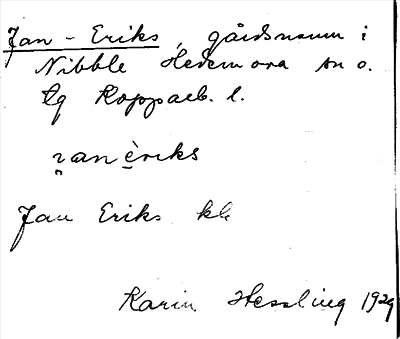 Jan-Eriks, gårdsnamn i
Nibble Hedemora sn o.
tg Kopparb. l.
Jan Eriks
Karin Hessling 1929